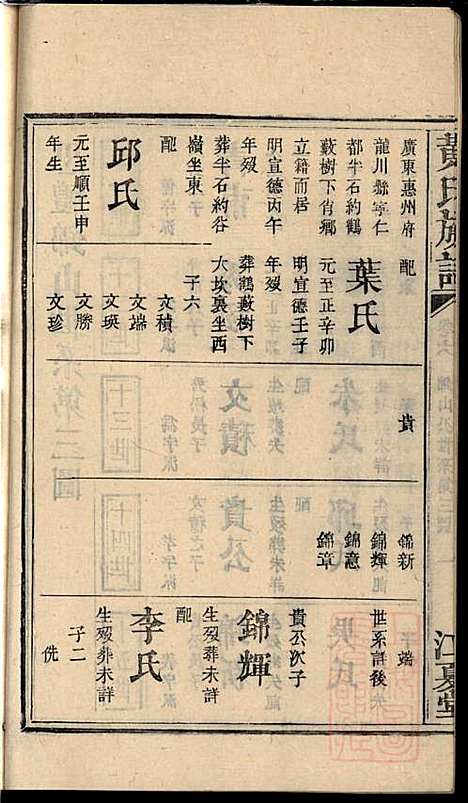 黄氏族譜
江夏堂
廣東惠州府
龍川縣寧仁
都半石約鶴
藪樹下肖鄉
立籍而居
明宣德丙午
年歿
葬半石約谷
嶺坐東
配
邱氏
元至順壬申
年生
配
葉氏
元至正辛卯
明宣德壬子
年歿
葬鶴藪樹下
大坎裏坐西
子六
文積
文端
文瑛
文勝
文珍
貴
錦新
錦輝
錦意
錦章
端
世系詳後
貴公次子
錦輝
生歿葬未詳
配
李氏
生歿葬未詳
子二
侁